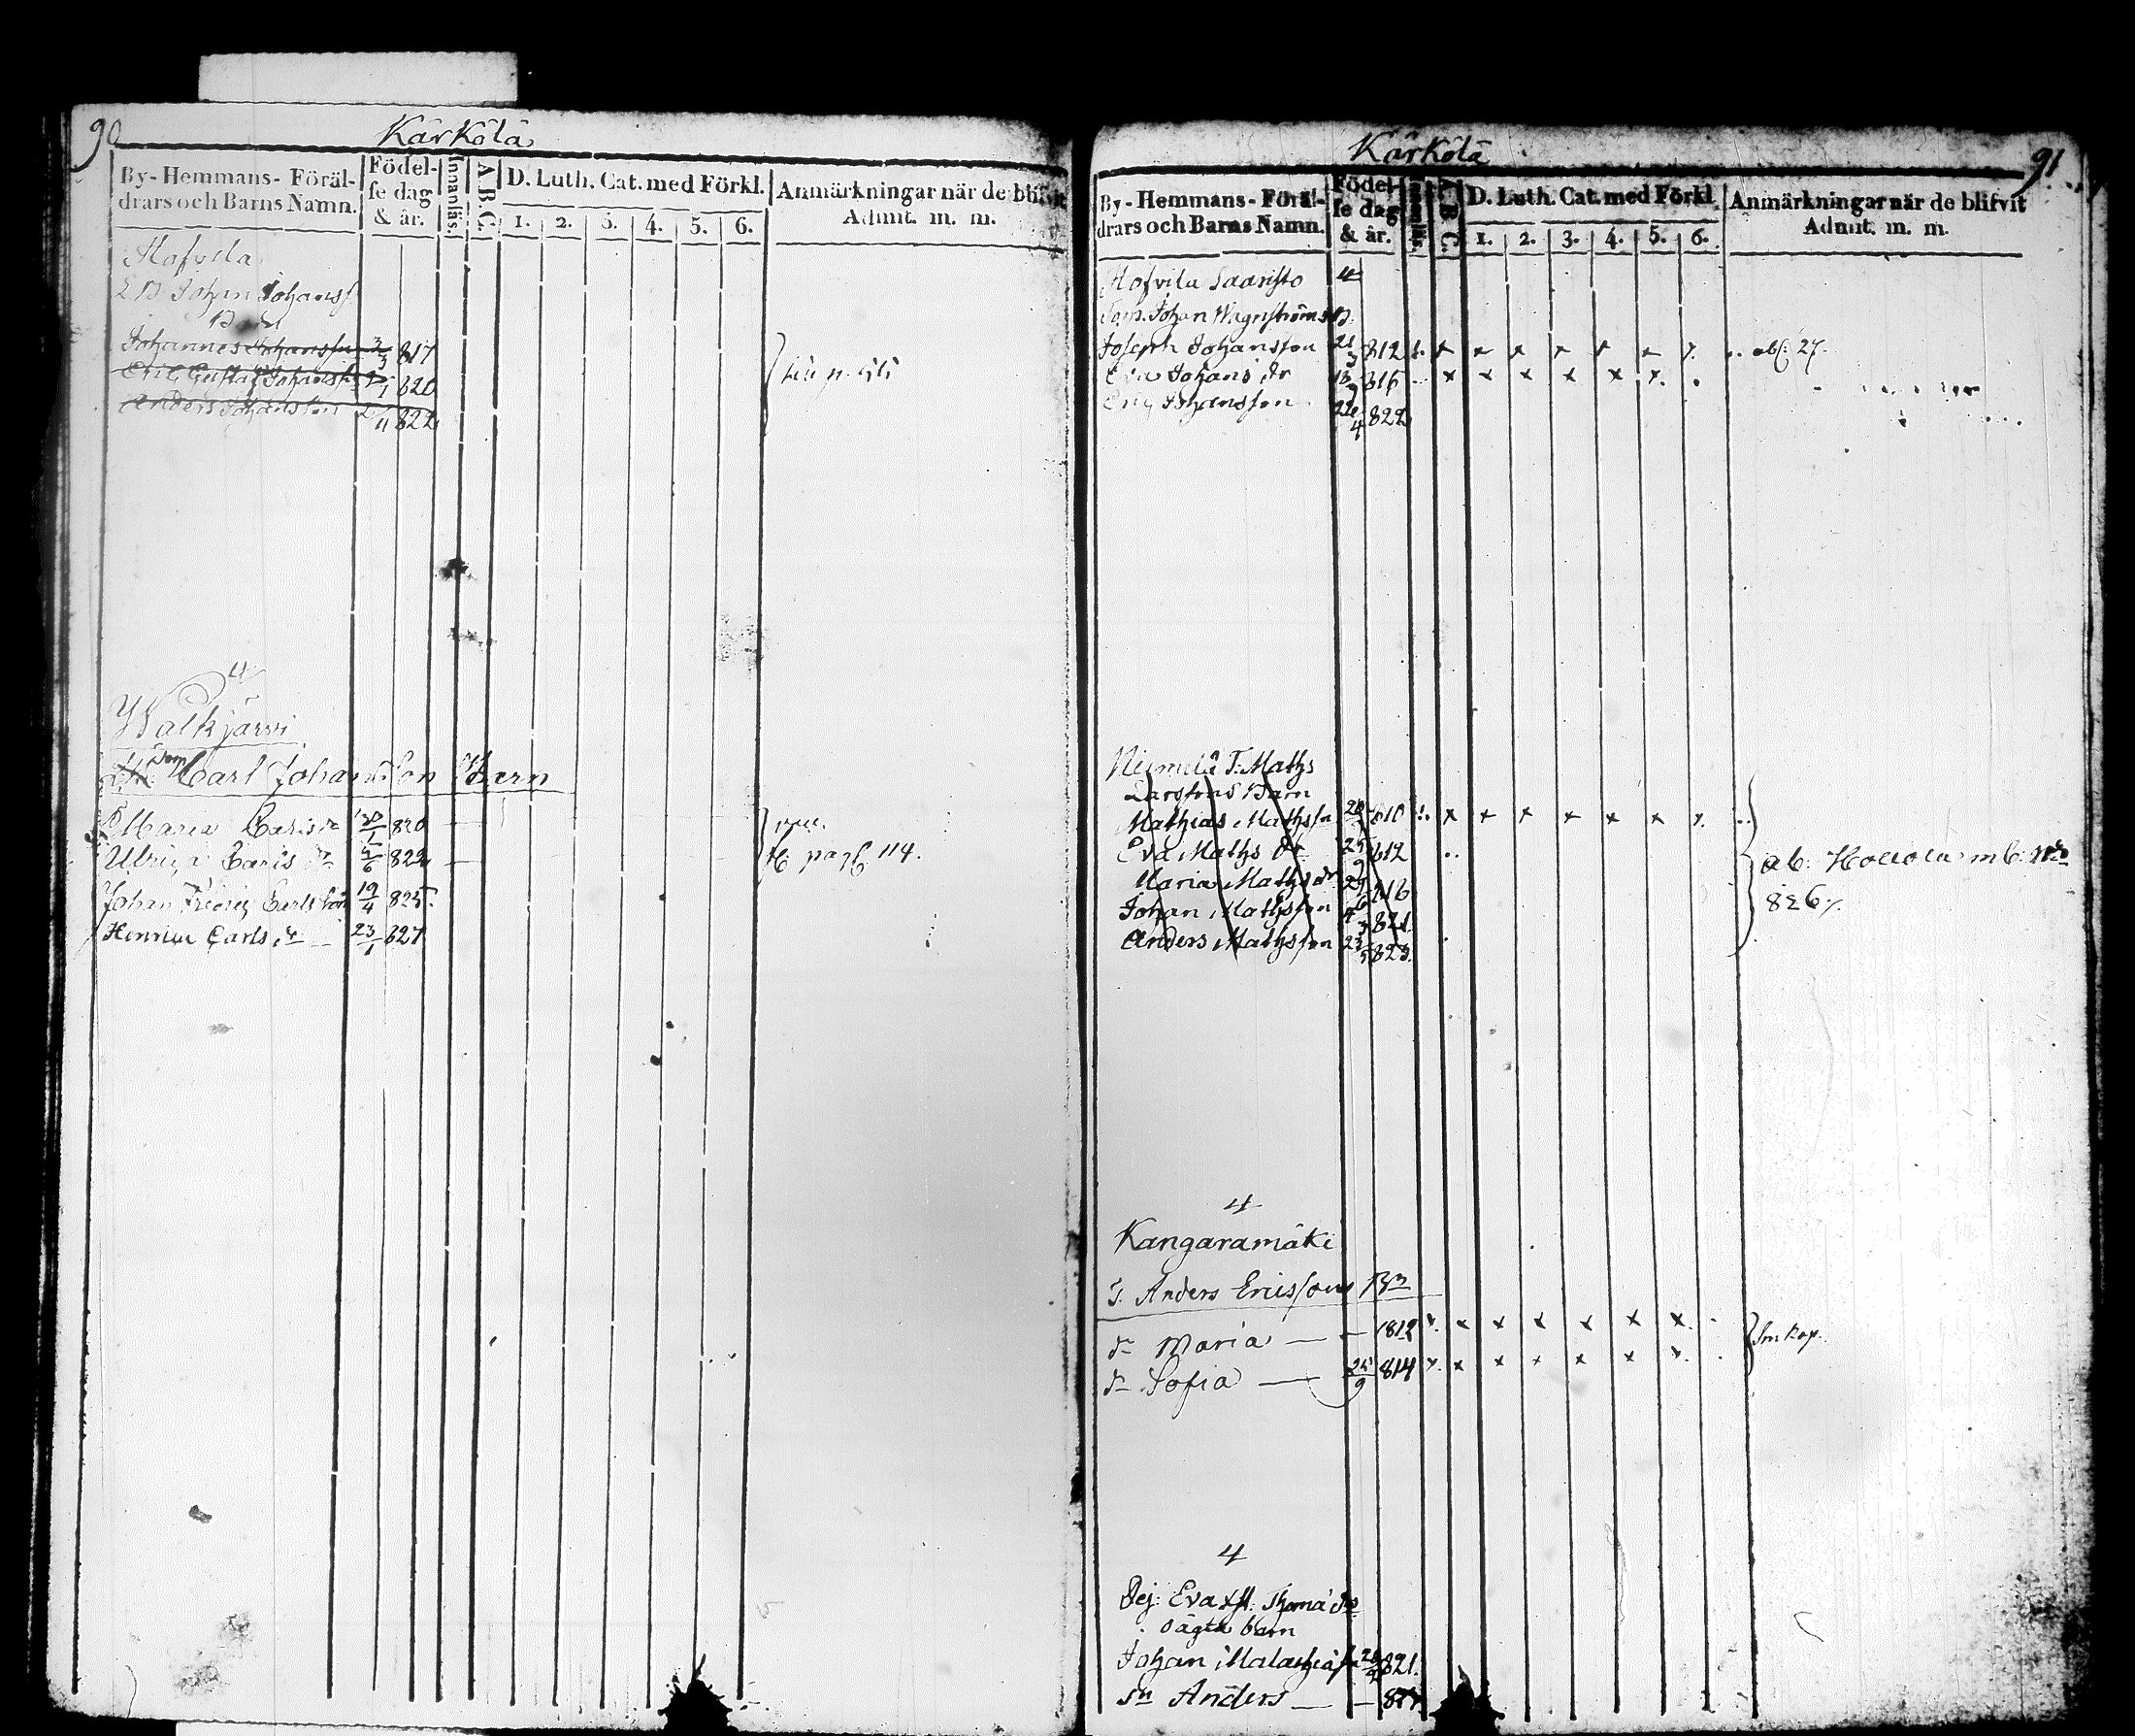 90
Kärkölä
By-Hemmans-Föräl-
drars och Barns Namn.
Födel-
se dag
& år.
Innanläs.
A.B.C.
D. Luth. Cat. med Förkl.
1. 2. 3. 4. 5. 6.
Anmärkningar när de blifvit
Admt. m. m.
Hofvila
Johan Johanss
Johannes Johansson 3/3 817
Eric Gustaf Johanss 820
Anders Johansson 2/11 822
4
Walkjärvi
Carl Johansson Barn
Maria Carls dr 20/1 820
Ulrica Carls dr 2/6 822
Johan Fridric Carlsson 19/4 825.
Henrica Carls dr 23/1 827
pag 114.
91
Kärkölä
By-Hemmans-Föräl-
drars och Barns Namn.
Födel-
se dag
& år.
Innanläs.
A B C.
D. Luth. Cat. med Förkl.
1. 2. 3. 4. 5. 6.
Anmärkningar när de blifvit
Admt. m. m.
Hofvila Saaristo 4
Johan Wagnströms B
Joseph Johansson 21/3 812 x x x x x x x abs: 27.
Eva Johans dr 13/9 816 x x x x x x
Eric Johansson 22/4 822
Niemelä T. Maths
Larssons Barn
Mathias Mathss 810 x x x x x x x
Eva Maths dr 25/9 812
Maria Maths dr 29/6 816
Johan Mathsson 4/3 821.
Anders Mathsson 23/5 823.
ab: Hollola mb:
826
4
Kangaramäki
T. Anders Ericssons Bn
dr Maria — — 1812 x x x x x x
dr Sofia — 25/9 814 x x x x x x
4
Pej: Eva Thomä dr
oägta barn
Johan 821.
sn Anders — — 827